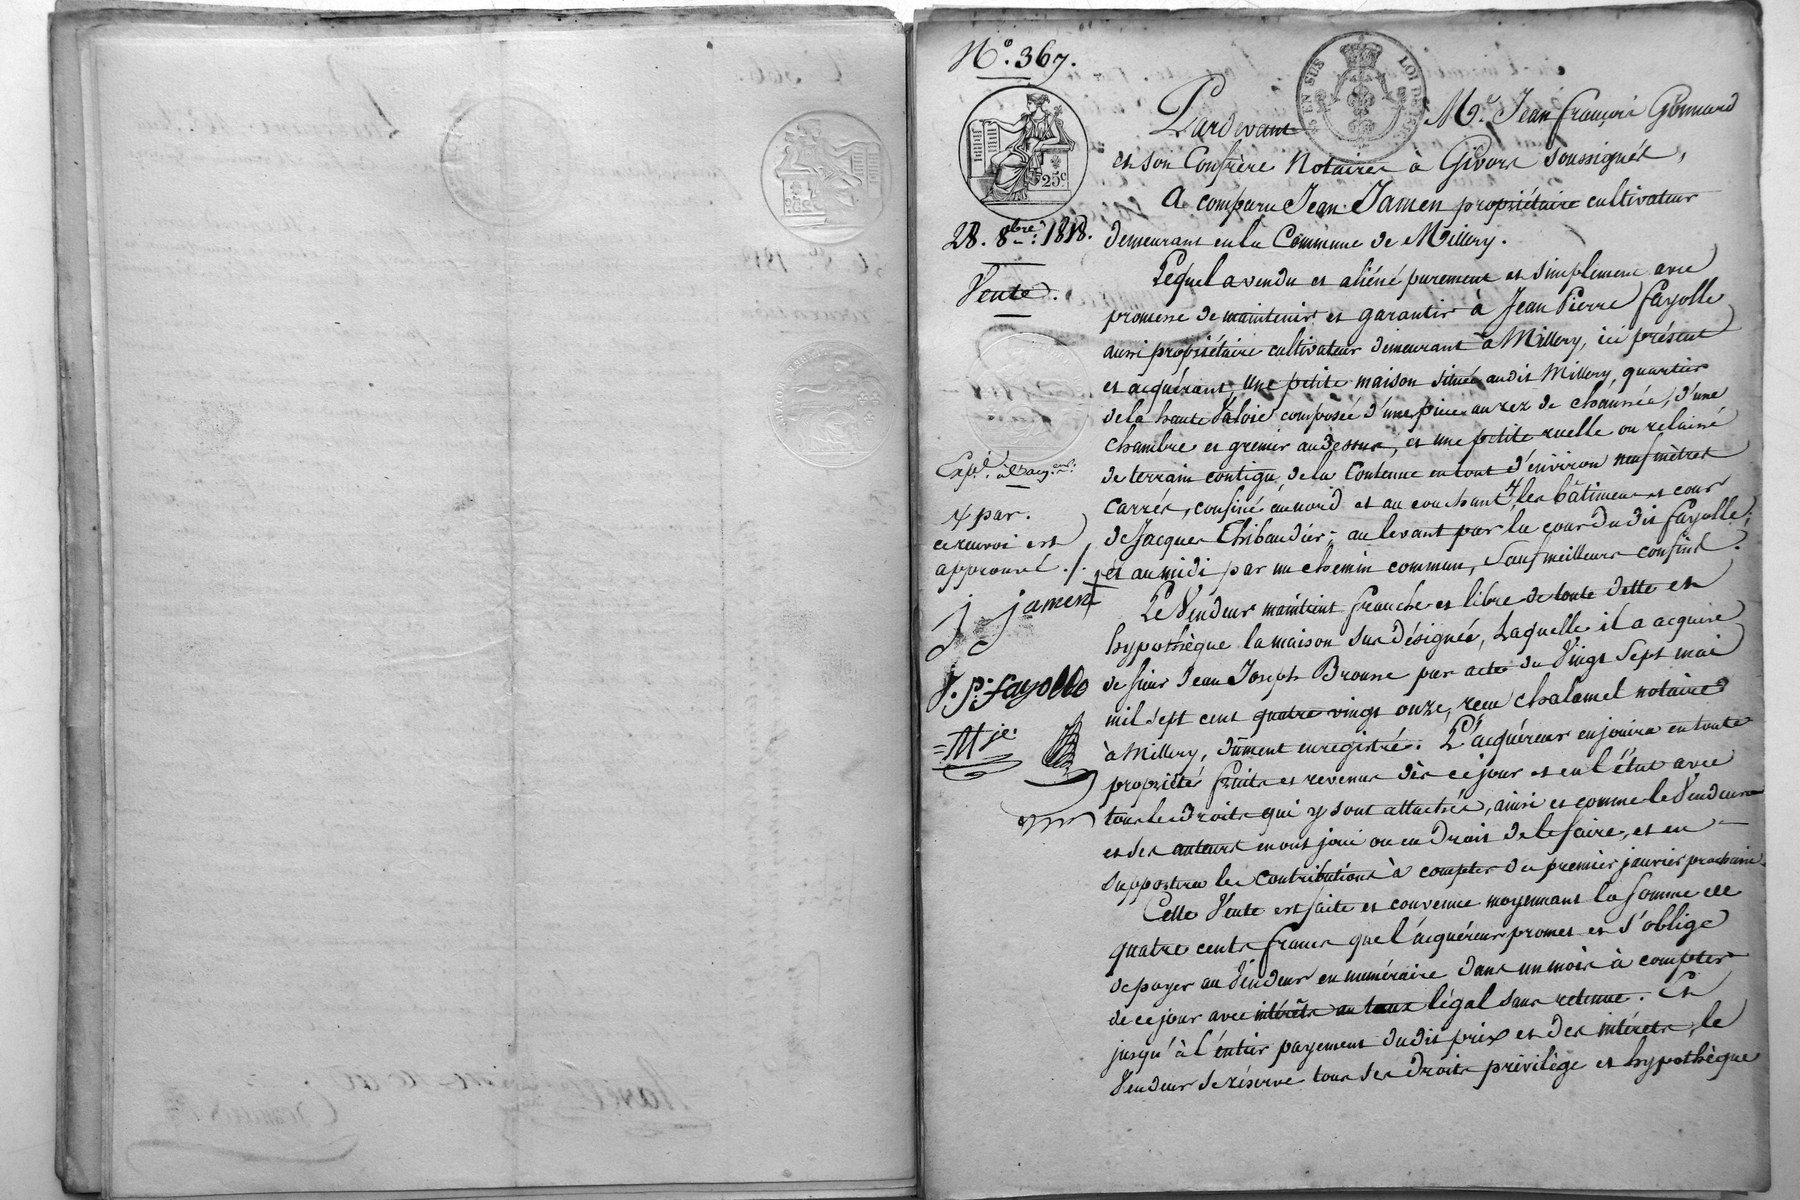 N.º 367.
EN SUS
LOI DE 1816
25c
28. 8bre 1818.
Vente.
Expé. à l'acq.
x par.
ce renvoi est
approuvé ./.
j jamen
J. P. fayolle
Pardevant Me. Jean françois Gonnard
et son Confrère Notaires à Givors soussignés,
A comparu Jean Jamen propriétaire cultivateur
demeurant en la Commune de Millery.
Lequel a vendu et aliéné purement et simplement avec
promesse de maintenir et garantir à Jean Pierre fayolle
aussi propriétaire cultivateur demeurant à Millery, ici présent
et acquérant, Une petite maison située audit Millery, quartier
de la haute Valoie composée d'une pièce au rez de chaussée, d'une
chambre et grenier au dessus, et une petite ruelle ou relaissé
de terrain contigu, de la Contenue en tout d'environ neuf mètres
carrés, confiné au nord et au couchant x les bâtimens et cour
de Jacques Thibaudier; au levant par la cour dudit fayolle;
et au midi par un chemin commun, sauf meilleurs confins.
Le Vendeur maintient franche et libre de toute dette et
hypothèque la maison sus désignée, Laquelle il a acquise
de sieur Jean Joseph Brousse par acte du Vingt Sept mai
mil sept cent quatre vingt onze, reçu Chalamel notaire
à Millery, dûment enregistré. L'acquéreur en jouira en toute
propriété fruits et revenus dès ce jour et en l'état avec
tous les droits qui y sont attachés, ainsi et comme le Vendeur
et ses auteurs en ont joui ou eu droit de le faire, et en
supportera les contributions à compter du premier janvier prochain.
Cette Vente est faite et convenue moyennant la somme de
quatre cents francs que l'acquéreur promet et s'oblige
de payer au Vendeur en numéraire dans un mois à compter
de ce jour avec intérêts au taux légal sans retenue. Et
jusqu'à l'entier payement dudit prix et des intérêts, le
Vendeur se réserve tous ses droits privilège et hypothèque